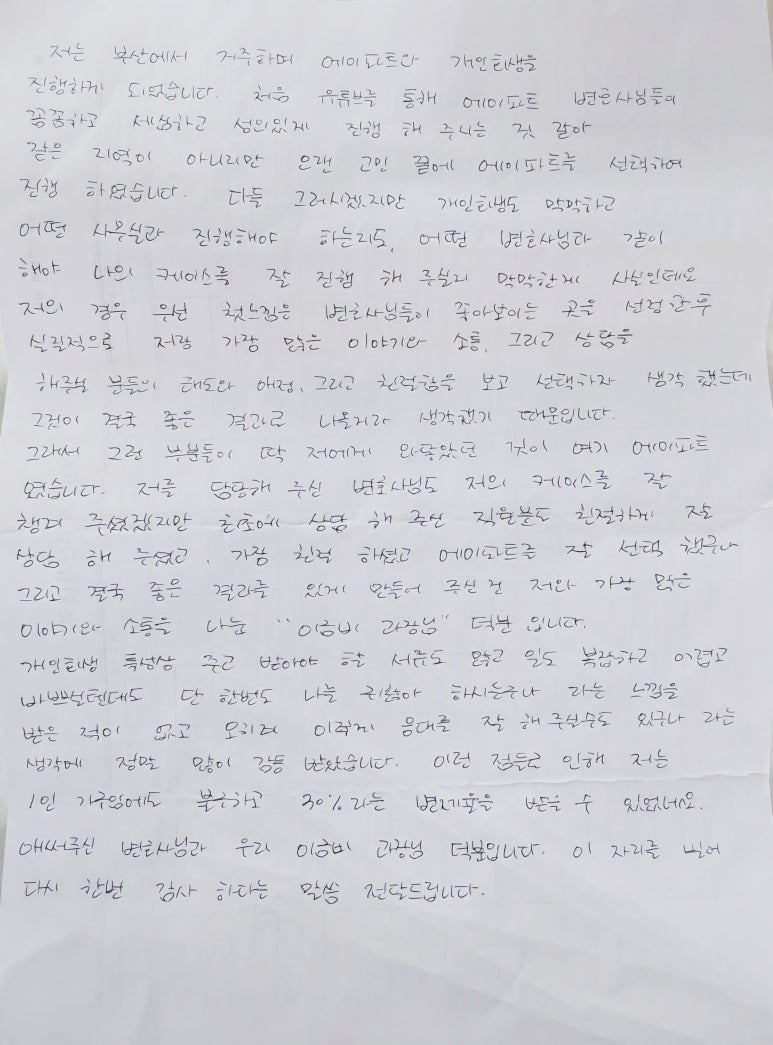 저는 부산에서 거주하며 에이파트와 개인회생을
진행하게 되었습니다. 처음 유튜브를 통해 에이파트 변호사님들이
꼼꼼하고 세심하고 성의있게 진행 해 주시는 것 같아
같은 지역이 아니지만 오랜 고민 끝에 에이파트를 선택하여
진행 하였습니다. 다들 그러시겠지만 개인회생도 막막하고
어떤 사무실과 진행해야 하는지도, 어떤 변호사님과 같이
해야 나의 케이스를 잘 진행 해 주실지 막막한게 사실인데요
저의 경우 우선 첫느낌은 변호사님들이 좋아보이는 곳을 선정한 후
실질적으로 저랑 가장 많은 이야기와 소통, 그리고 상담을
해주실 분들의 태도와 애정, 그리고 친절함을 보고 선택하자 생각 했는데
그것이 결국 좋은 결과로 나올거라 생각했기 때문입니다.
그래서 그런 부분들이 딱 저에게 와닿았던 것이 여기 에이파트
였습니다. 저를 담당해 주신 변호사님도 저의 케이스를 잘
챙겨 주셨겠지만 최초에 상담 해 주신 직원분도 친절하게 잘
상담 해 주셨고, 가장 친절 하셨고 에이파트를 잘 선택 했구나
그리고 결국 좋은 결과를 있게 만들어 주신 건 저와 가장 많은
이야기와 소통을 나눈 "이금비 과장님" 덕분 입니다.
개인회생 특성상 주고 받아야 할 서류도 많고 일도 복잡하고 어렵고
바쁘실텐데도 단 한번도 나를 귀찮아 하시는구나 라는 느낌을
받은 적이 없고 오히려 이렇게 응대를 잘 해 주실수도 있구나 라는
생각에 정말 많이 감동 받았습니다. 이런 점들로 인해 저는
1인 가구임에도 불구하고 30%라는 변제율을 받을 수 있었네요.
애써주신 변호사님과 우리 이금비 과장님 덕분입니다. 이 자리를 빌어
다시 한번 감사 하다는 말씀 전달드립니다.